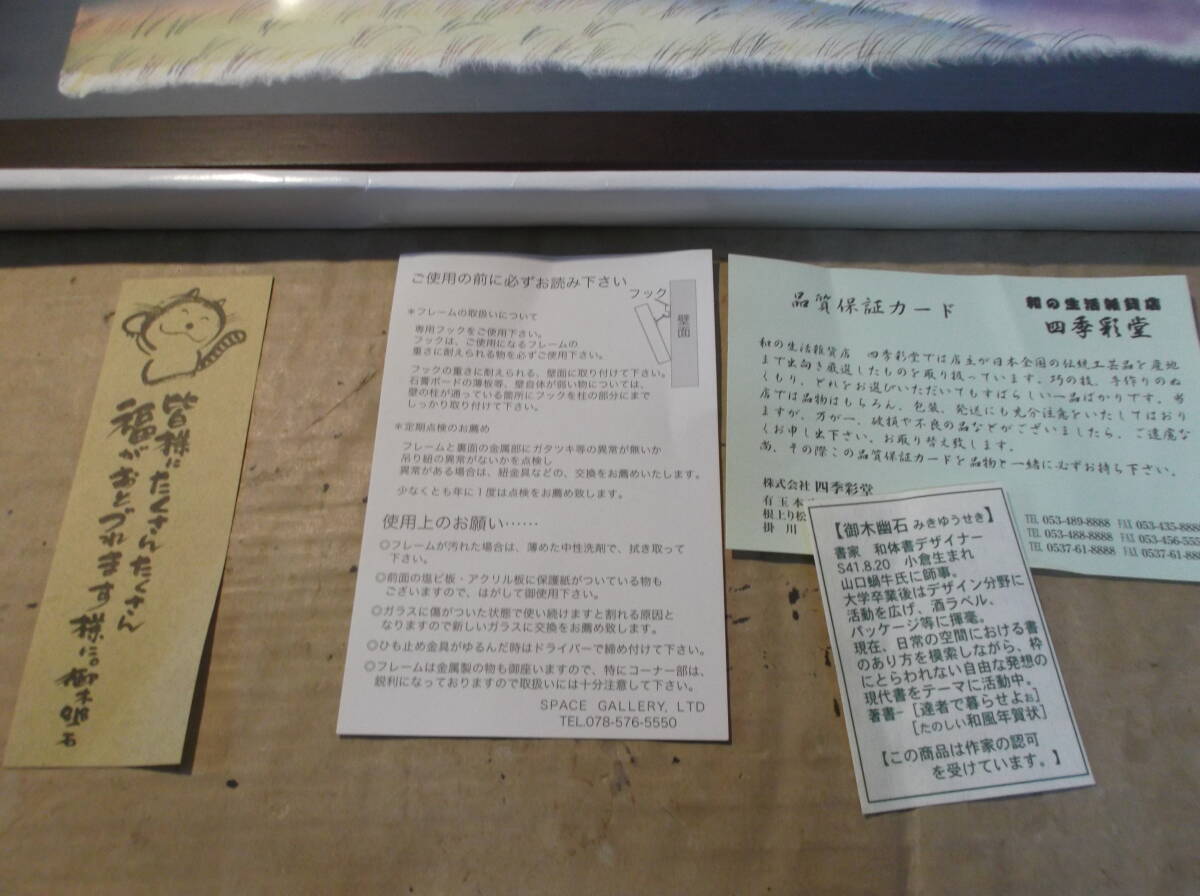 皆様にたくさんたくさん
福がおとづれます様に。
御木幽石
ご使用の前に必ずお読み下さい
フック
壁面
＊フレームの取扱いについて
専用フックをご使用下さい。
フックは、ご使用になるフレームの
重さに耐えられる物を必ずご使用下さい。
フックの重さに耐えられる、壁面に取り付けて下さい。
石膏ボードの薄板等、壁自体が弱い物については、
壁の柱が通っている箇所にフックを柱の部分にまで
しっかり取り付けて下さい。
＊定期点検のお薦め
フレームと裏面の金属部にガタツキ等の異常が無いか
吊り紐の異常がないかを点検し
異常がある場合は、紐金具などの、交換をお薦めいたします。
少なくとも年に１度は点検をお薦め致します。
使用上のお願い……
◎フレームが汚れた場合は、薄めた中性洗剤で、拭き取って
下さい。
◎前面の塩ビ板・アクリル板に保護紙がついている物も
ございますので、はがして御使用下さい。
◎ガラスに傷がついた状態で使い続けますと割れる原因と
なりますので新しいガラスに交換をお薦め致します。
◎ひも止め金具がゆるんだ時はドライバーで締め付けて下さい。
◎フレームは金属製の物も御座いますので、特にコーナー部は、
鋭利になっておりますので取扱いには十分注意して下さい。
SPACE GALLERY, LTD
TEL.078-576-5550
品質保証カード
和の生活雑貨店
四季彩堂
和の生活雑貨店　四季彩堂では店主が日本全国の伝統工芸品を産地
まで出向き厳選したものを取り扱っています。巧の技、手作りのぬ
くもり、どれをお選びいただいてもすばらしい一品ばかりです。当
店では品物はもちろん、包装、発送にも充分注意をいたしてはおり
ますが、万が一、破損や不良の品などがございましたら、ご遠慮な
くお申し出下さい。お取り替え致します。
尚、その際この品質保証カードを品物と一緒に必ずお持ち下さい。
株式会社 四季彩堂
有玉本
根上り松
掛川
TEL 053-489-8888 FAX 053-435-888
TEL 053-488-8888 FAX 053-456-555
TEL 0537-61-8888 FAX 0537-61-88
【御木幽石 みきゆうせき】
書家　和体書デザイナー
S41.8.20　小倉生まれ
山口蝸牛氏に師事。
大学卒業後はデザイン分野に
活動を広げ、酒ラベル、
パッケージ等に揮毫。
現在、日常の空間における書
のあり方を模索しながら、枠
にとらわれない自由な発想の
現代書をテーマに活動中。
著書－［達者で暮らせよぉ］
［たのしい和風年賀状］
【この商品は作家の認可
を受けています。】